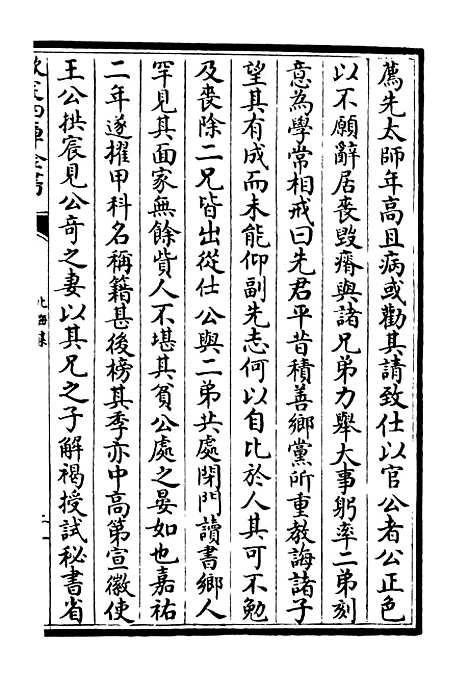 薦先太師年高且病或勸其請致仕以官公者公正色
以不願辭居喪毀瘠與諸兄弟力舉大事躬率二弟刻
意為學常相戒曰先君平昔積善鄉黨所重教誨諸子
望其有成而未能仰副先志何以自比於人其可不勉
及喪除二兄皆出從仕公與二弟共處閉門讀書鄉人
罕見其面家無餘貲人不堪其貧公處之晏如也嘉祐
二年遂擢甲科名稱籍甚後榜其季亦中高第宣徽使
王公拱宸見公奇之妻以其兄之子解褐授試秘書省
欽定四庫全書
北海集